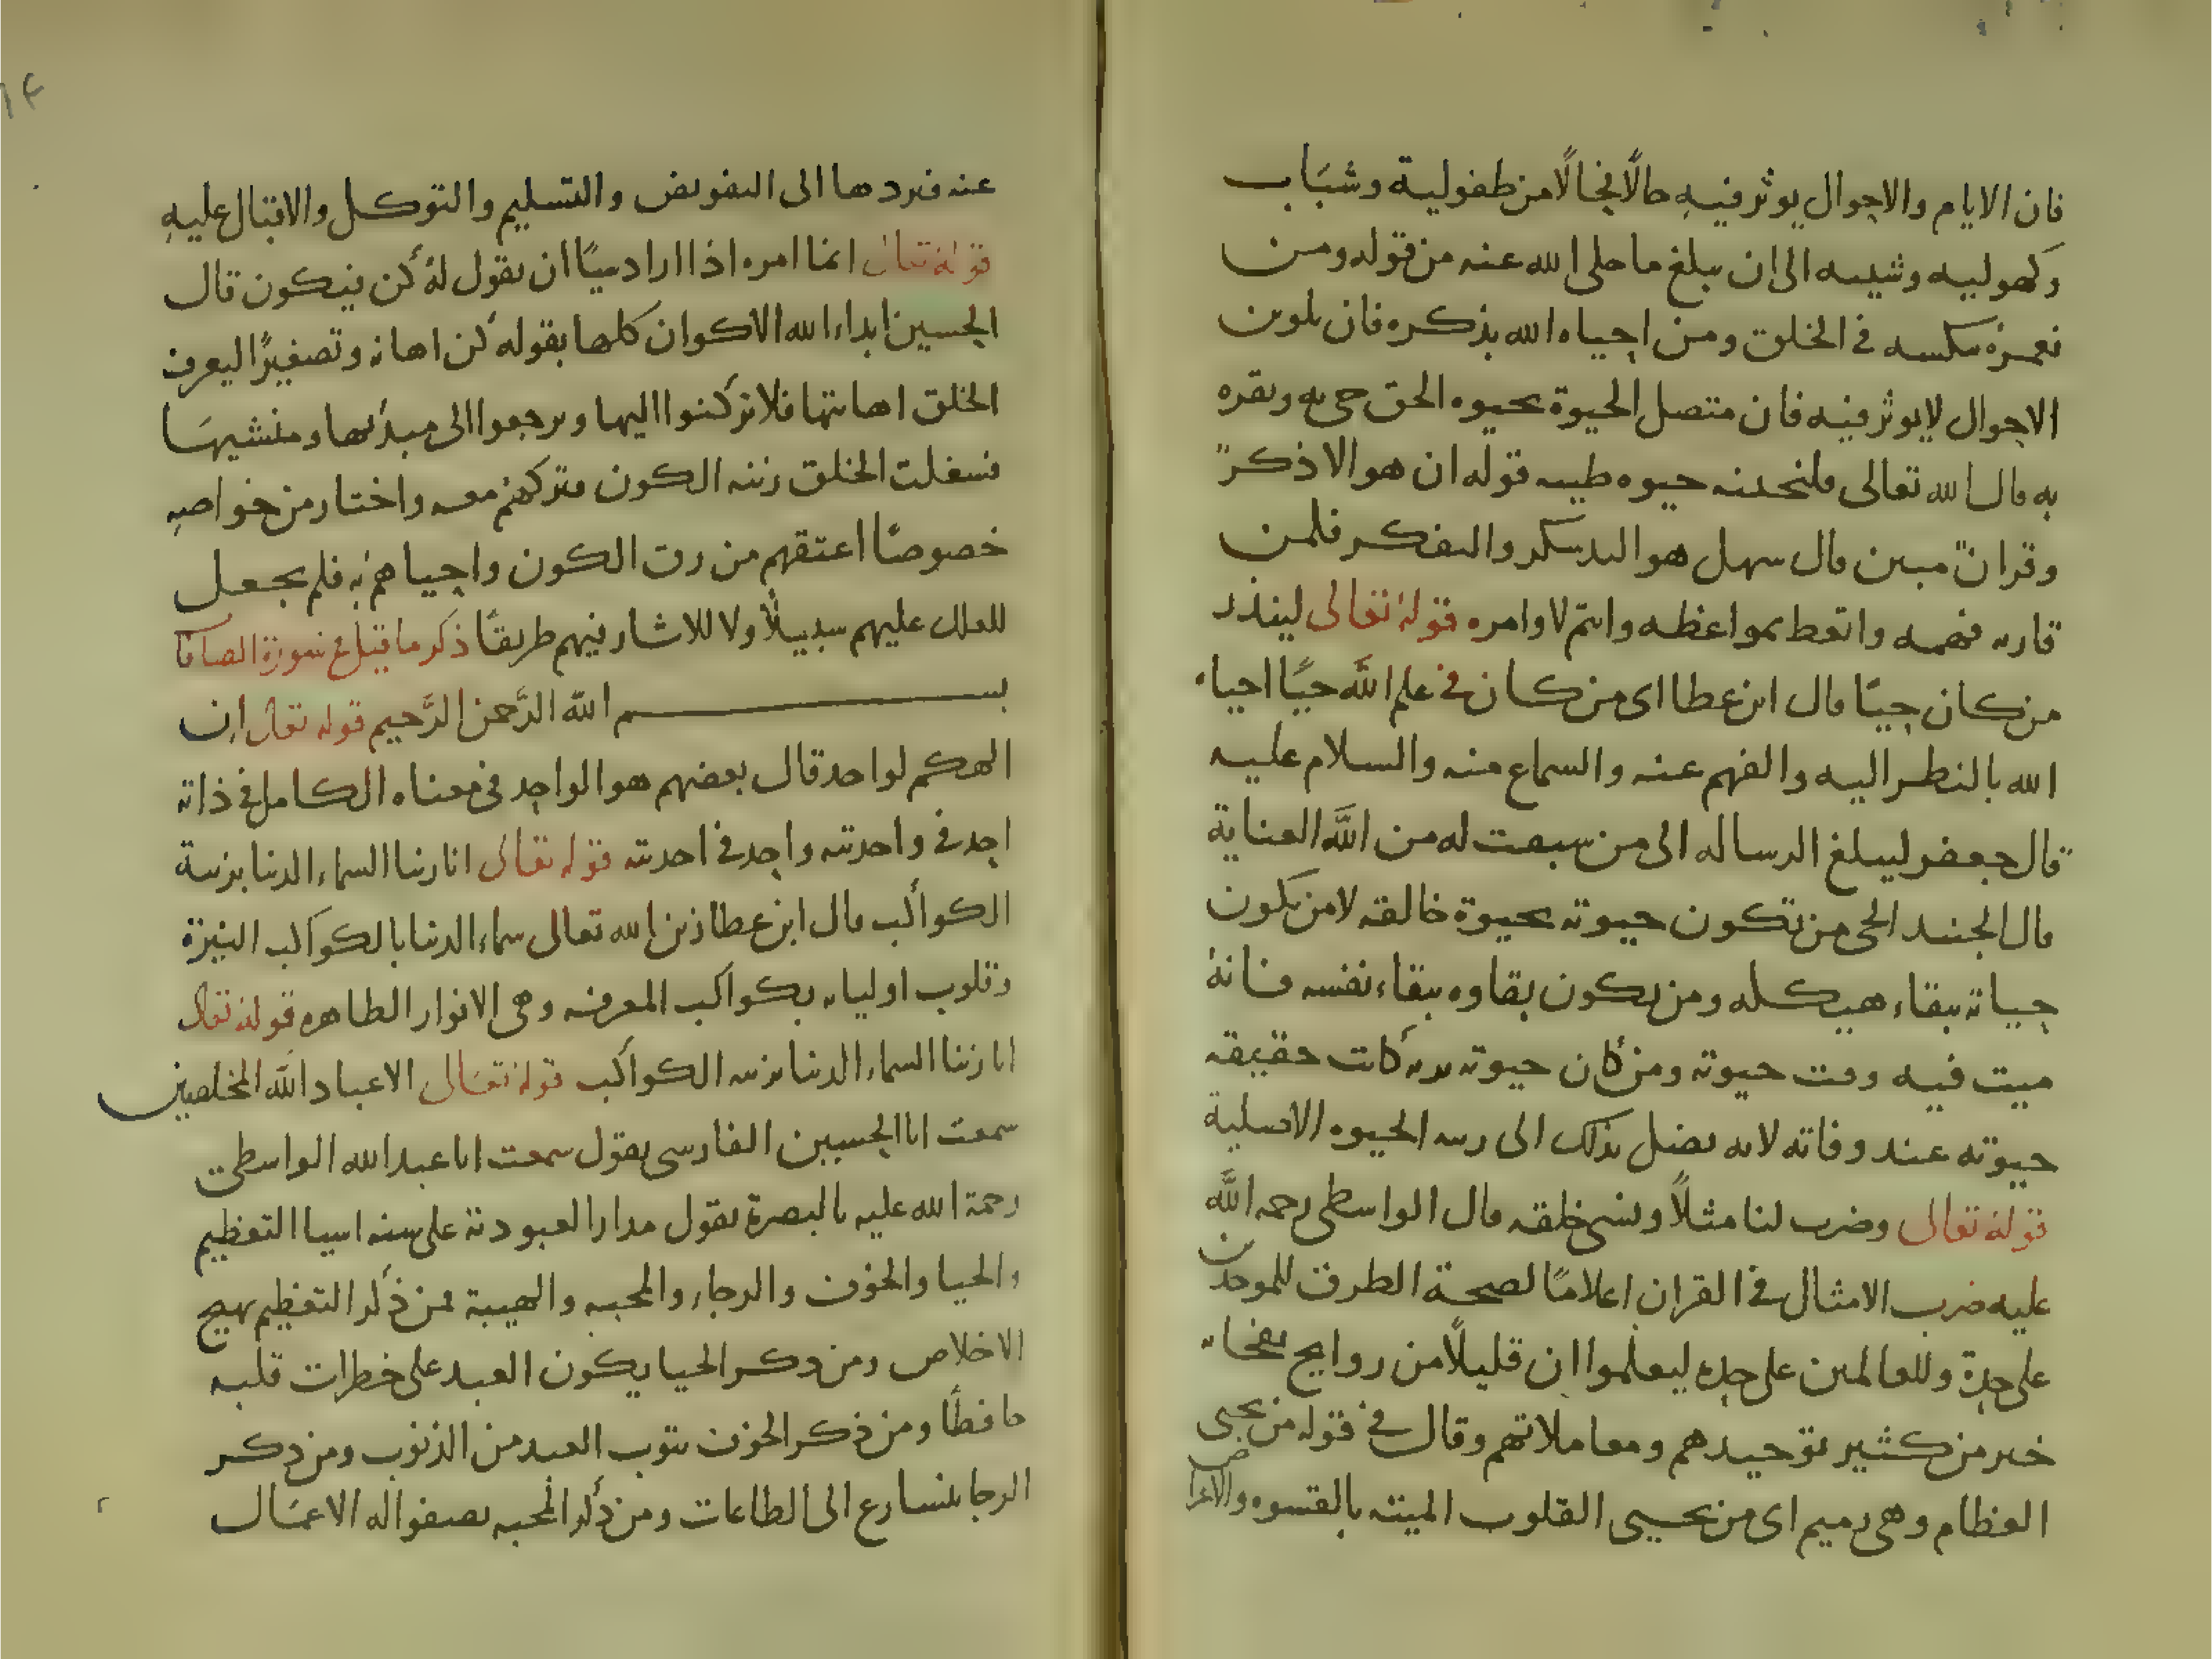 فان الايام والاحوال يوثر فيه حالًا فحالًا من طفولية وشباب
وكهوليه وشيبه الى ان يبلغ ما حكى الله عنه من قوله ومن
نعمره ننكسه في الخلق ومن احياه الله بذكره فان تلوين
الاحوال لا يوثر فيه فان متصل الحيوة بحيوه الحق حى به وبقره
به قال الله تعالى فلنحيينه حيوه طيبه قوله ان هو الا ذكرٌ
وقرانٌ مبين قال سهل هو التذكر والتفكر فلمن
قاربه فهمه واتعظ بمواعظه وائتم لاوامره قوله تعالى لينذر
من كان حيًا قال ابن عطا اى من كان في علم الله حيًا احياه
الله بالنظر اليه والفهم عنه والسماع منه والسلام عليه
قال جعفر ليبلغ الرساله الى من سبقت له من الله العناية
قال الجنيد الحى من تكون حيوته بحيوة خالقه لا من تكون
حياته ببقاء هيكله ومن يكون بقاوه ببقاء نفسه فانهٔ
ميت فيه وقت حيوته ومن كان حيوته بربه كانت حقيقه
حيوته عند وفاته لانه يصل بذلك الى رتبه الحيوه الاصلية
قوله تعالى وضرب لنا مثلًا ونسى خلقه قال الواسطى رحمه الله
عليه ضرب الامثال في القران اعلامًا لصحة الطرق للموحدين
على حدة وللعالمين على حده ليعلموا ان قليلًا من روايح نفحاته
خير من كثير توحيدهم ومعاملاتهم وقال في قوله من يحيى
العظام وهى رميم اى من يحيى القلوب الميته بالقسوه والاعراض
١٤
عنه فيردها الى التفويض والتسليم والتوكل والاقبال عليه
قوله تعالى انما امره اذا اراد شيًا ان يقول له كن فيكون قال
الحسين ابداء الله الاكوان كلها بقوله كن اهانة وتصغيرًا ليعرف
الخلق اهانتها فلا تركنوا اليها ويرجعوا الى مبدئها ومنشيها
فشغلت الخلق زينه الكون فتركهم معه واختار من خواصه
خصوصًا اعتقهم من رق الكون واحياهم به فلم يجعل
للعلل عليهم سبيلًا ولا للاثار فيهم طريقًا ذكر ما قيل في سورة الصافات
بسم الله الرحمن الرحيم قوله تعالى ان
الهكم لواحد قال بعضهم هو الواحد في معناه الكامل في ذاته
احد في واحديته واحد في احديته قوله تعالى انا زينا السماء الدنيا بزينة
الكواكب قال ابن عطا زين الله تعالى سماء الدنيا بالكواكب النيرة
وقلوب اوليايه بكواكب المعرفه وهى الانوار الظاهره قوله تعالى
انا زينا السماء الدنيا بزينه الكواكب قوله تعالى الا عباد الله المخلصين
سمعت ابا الحسين الفارسى يقول سمعت ابا عبد الله الواسطى
رحمة الله عليه بالبصرة يقول مدار العبودية على سته اشيا التعظيم
والحيا والخوف والرجاء والمحبه والهيبة فمن ذكر التعظيم يهيج
الاخلاص ومن ذكر الحيا يكون العبد على خطرات قلبه
حافظًا ومن ذكر الخوف يتوب العبد من الذنوب ومن ذكر
الرجا يتسارع الى الطاعات ومن ذكر المحبه يصفوا له الاعمال